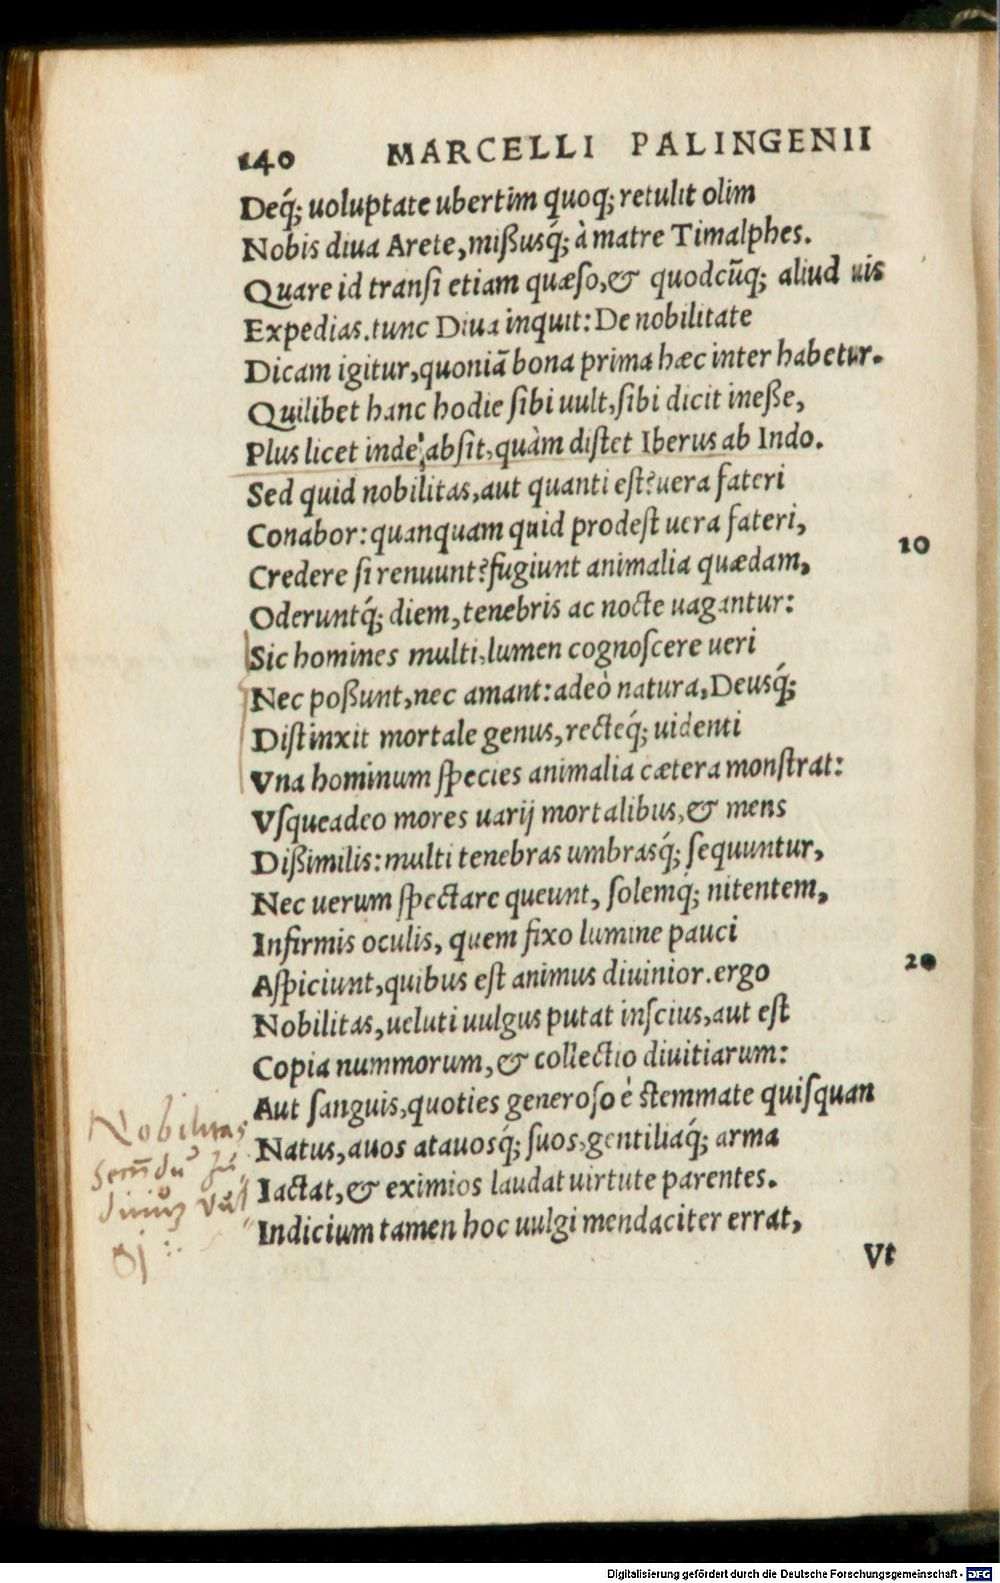 140 MARCELLI PALINGENII
Deq́; uoluptate ubertim quoq; retulit olim
Nobis diua Arete, mißusq́; à matre Timalphes.
Quare id transi etiam quæſo, & quodcũq; aliud uis
Expedias. tunc Diua inquit: De nobilitate
Dicam igitur, quoniã bona prima hæc inter habetur.
Quilibet hanc hodie ſibi uult, ſibi dicit ineße,
Plus licet inde abſit, quàm diſtet Iberus ab Indo.
Sed quid nobilitas, aut quanti eſt? uera fateri
Conabor: quanquam quid prodeſt uera fateri,
10
Credere ſi renuunt? fugiunt animalia quædam,
Oderuntq́; diem, tenebris ac nocte uagantur:
Sic homines multi, lumen cognoſcere ueri
Nec poßunt, nec amant: adeò natura, Deusq́;
Diſtinxit mortale genus, recteq́; uidenti
Vna hominum ſpecies animalia cætera monſtrat:
Vſqueadeo mores uarij mortalibus, & mens
Dißimilis: multi tenebras umbrasq́; ſequuntur,
Nec uerum ſpectare queunt, ſolemq́; nitentem,
Infirmis oculis, quem fixo lumine pauci
20
Aſpiciunt, quibus eſt animus diuinior. ergo
Nobilitas, ueluti uulgus putat inſcius, aut eſt
Copia nummorum, & collectio diuitiarum:
Aut ſanguis, quoties generoſo è ſtemmate quiſquan
Natus, auos atauosq́; ſuos, gentiliaq́; arma
Iactat, & eximios laudat uirtute parentes.
Indicium tamen hoc uulgi mendaciter errat,
Vt
Nobilitas
Digitalisierung gefördert durch die Deutsche Forschungsgemeinschaft - DFG